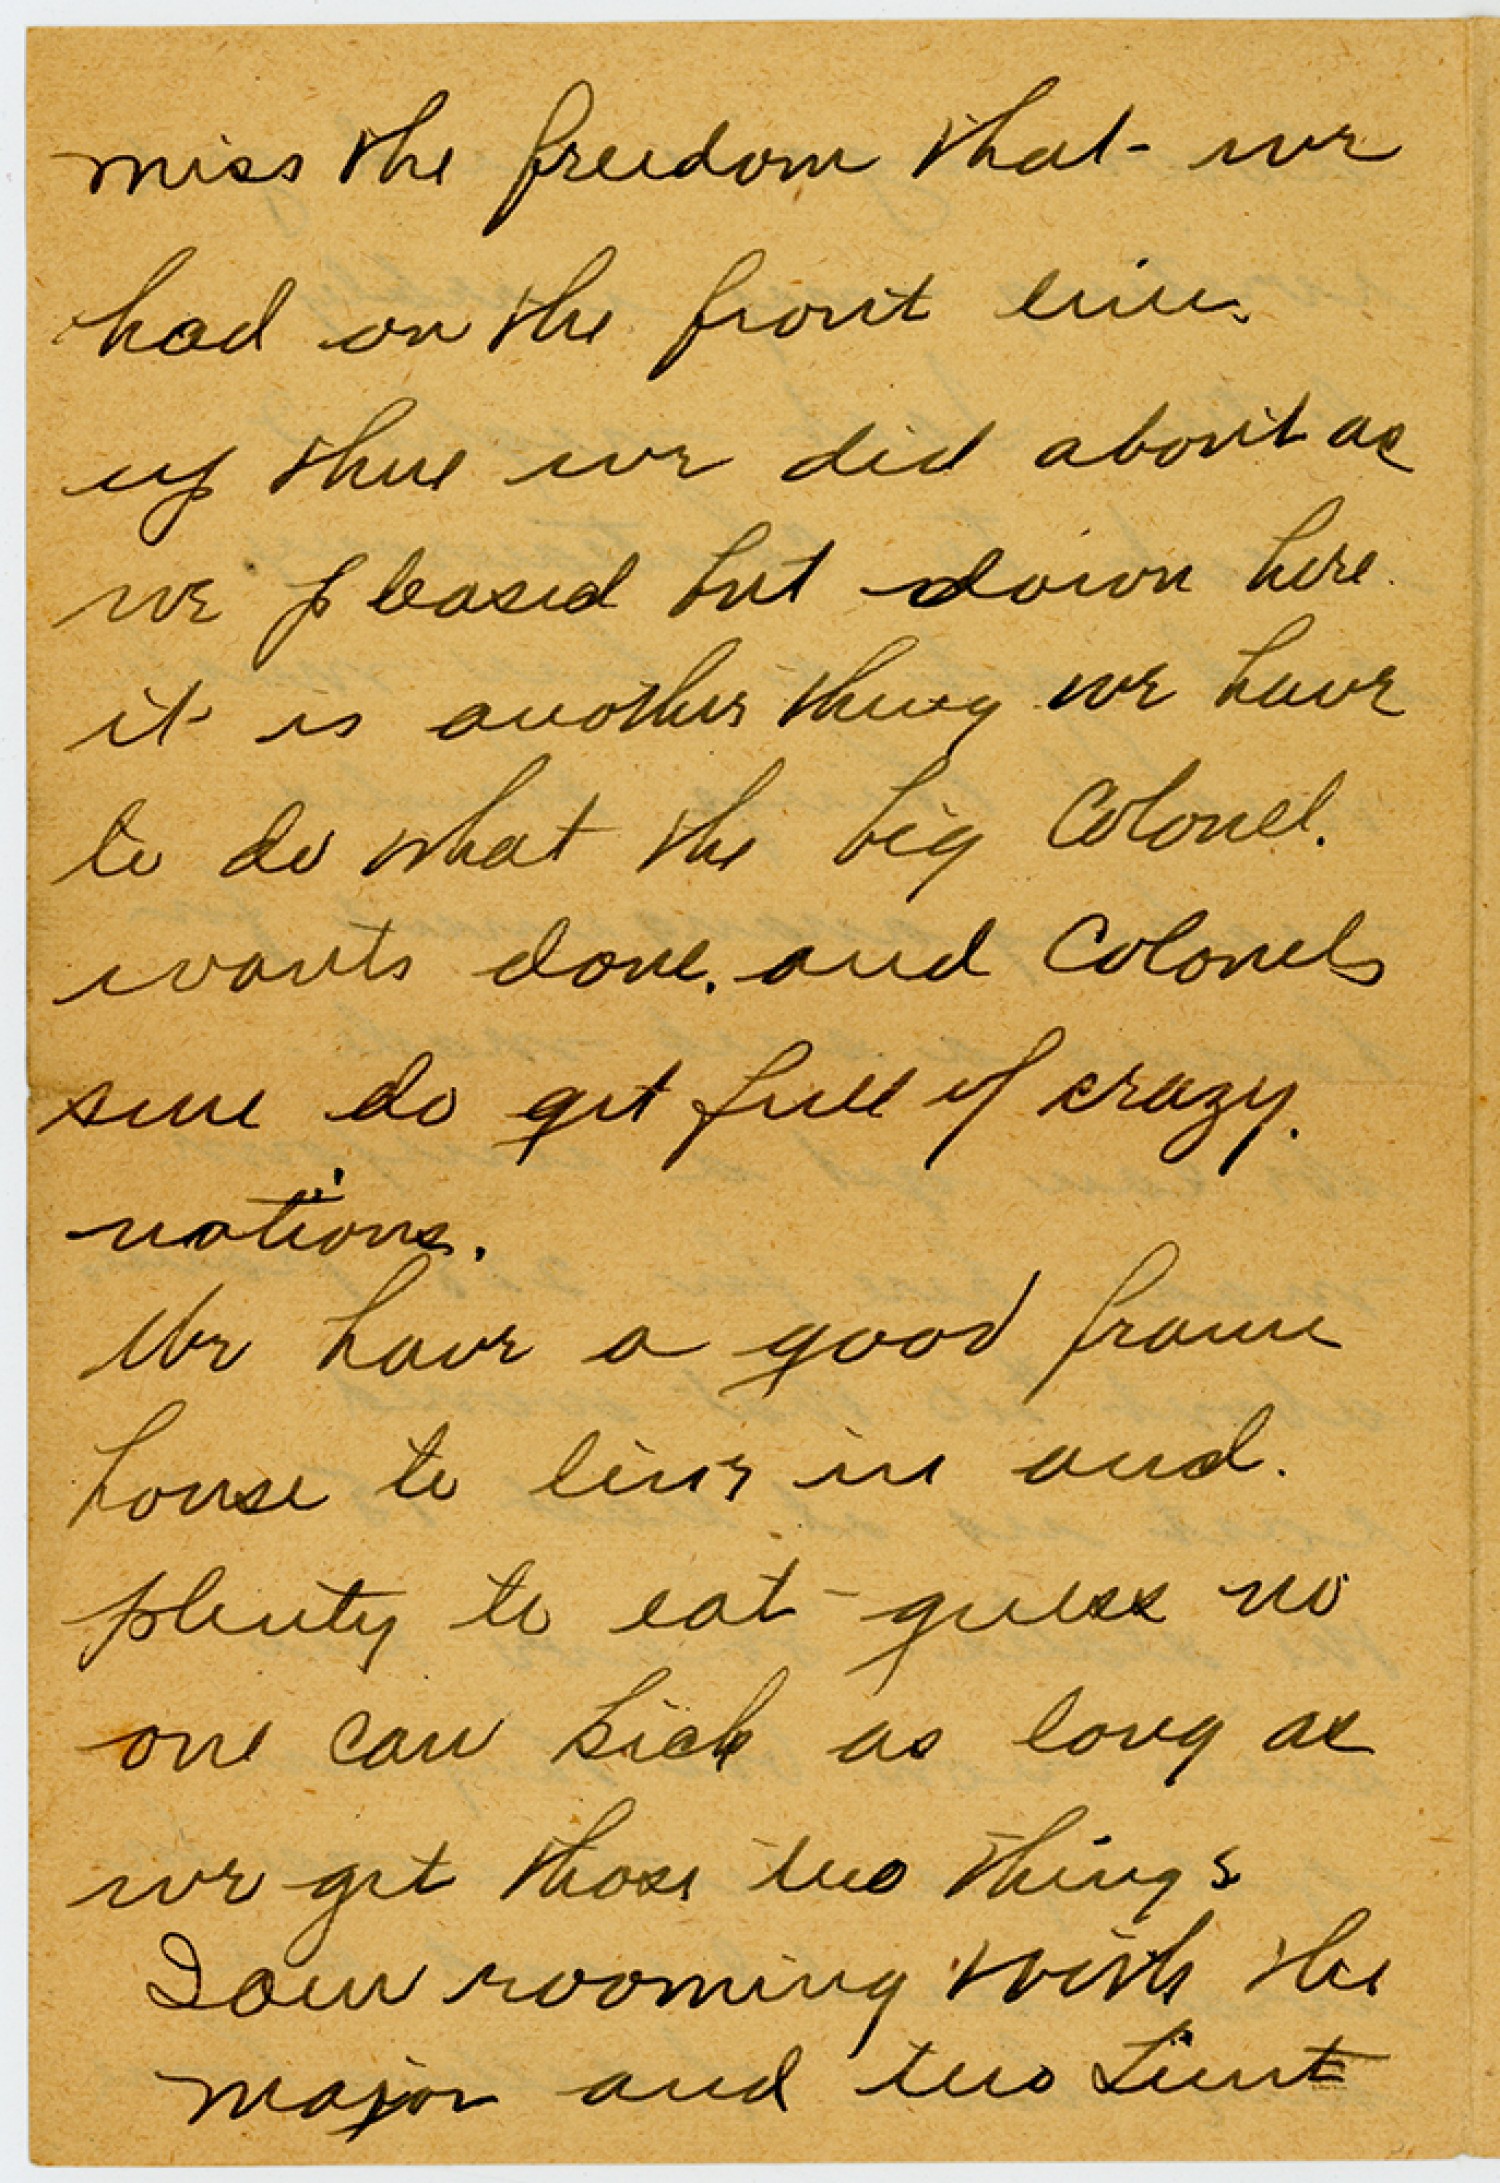 miss the freedom that we
had on the front line.
up there we did about as
we pleased but down here.
it is another thing we have
to do what the big Colonel.
wants done. and Colonels
sure do get full of crazy.
notions.
We have a good frame
house to live in and.
plenty to eat - guess no
one can kick as long as
we get those two things
I am rooming with the
major and two Lieut